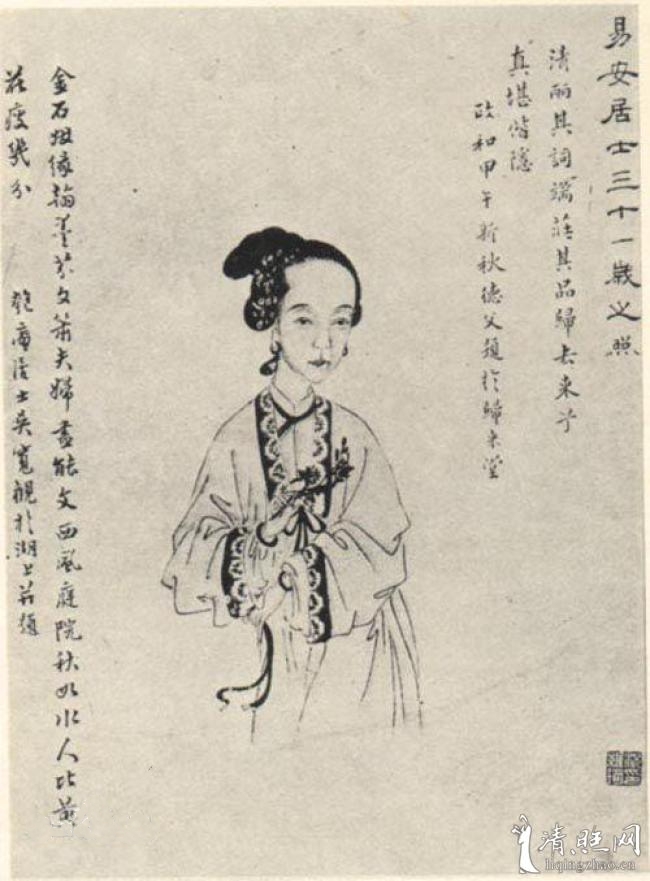 易安居士三十一歲之照
清丽其詞端莊其品歸去来兮
真堪偕隱
政和甲午新秋德父題於歸来堂
金石姻緣翰墨芬文簫夫婦盡能文西風庭院秋如水人比黄
花瘦幾分
匏庵居士吴寬觀於湖上并題
liqingzhao.cn